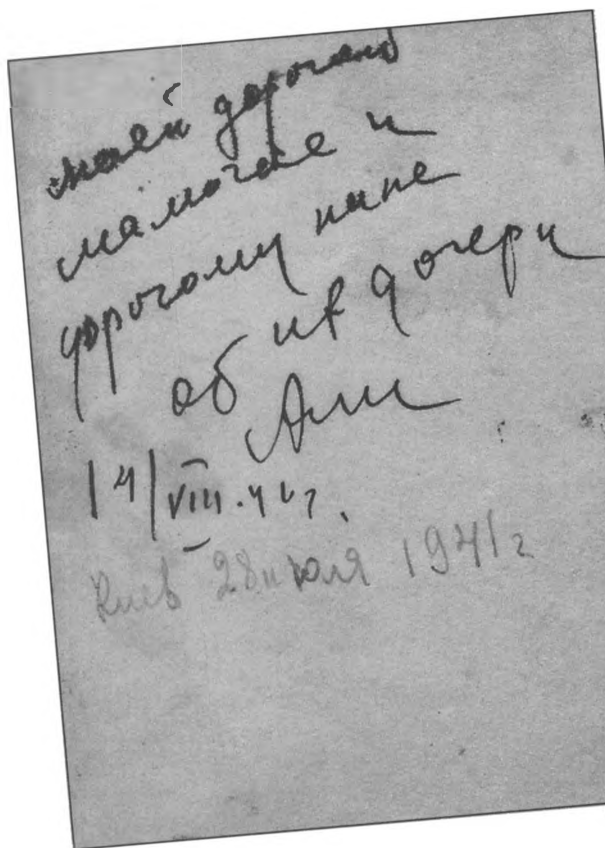 моей дорогой
мамочке и
дорогому папе
об их дочери
Али
14/VIII.41г.
Киев 28 июля 1941г